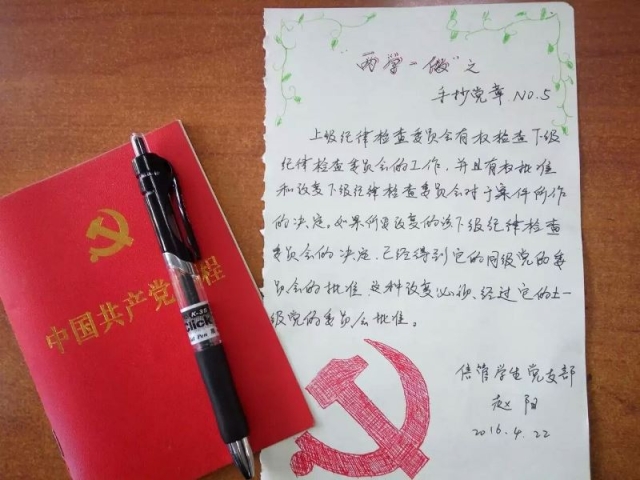 "两学一做"之
手抄党章 NO.5
上级纪律检查委员会有权检查下级
纪律检查委员会的工作，并且有权批准
和改变下级纪律检查委员会对于案件所作
的决定。如果所要改变的该下级纪律检查
委员会的决定，已经得到它的同级党的委
员会的批准，这种改变必须经过它的上一
级党的委员会批准。
信管学生党支部
赵阳
2016.4.22
中国共产党 程
K-35
Click
Pen